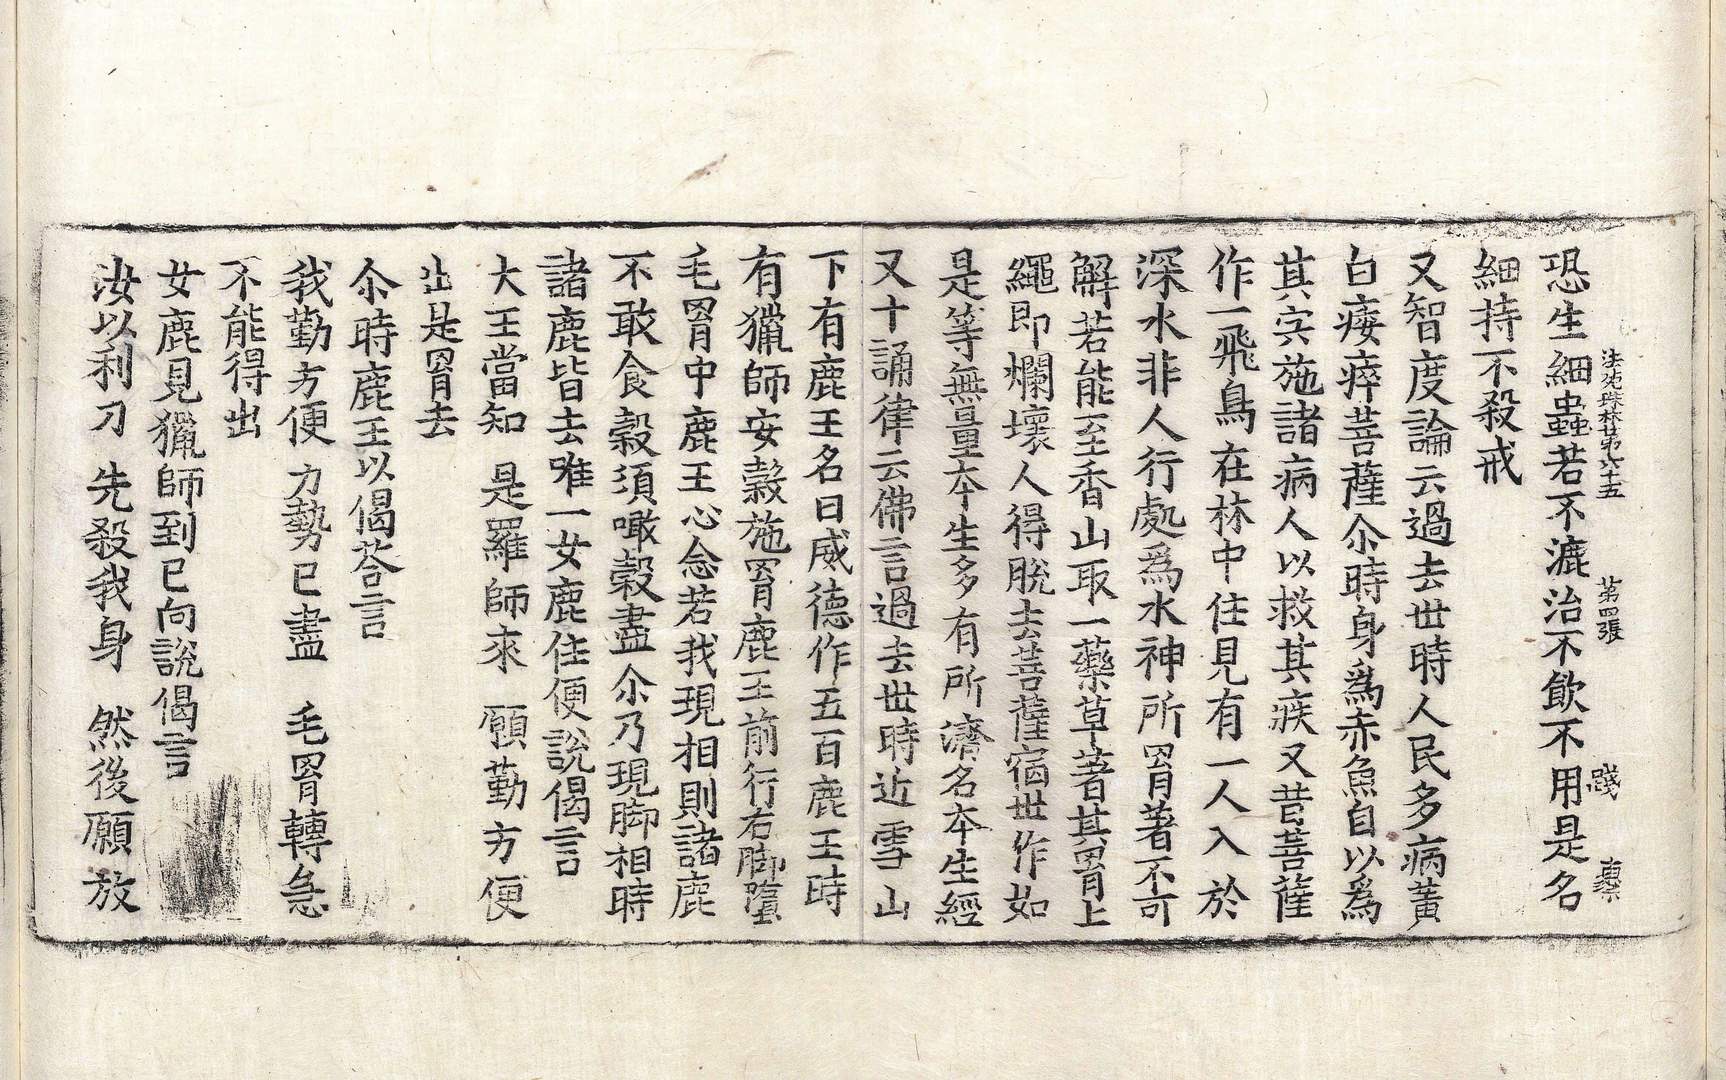 法苑珠林第六十五　第四張　踐　直䋈
恐生細蟲若不漉治不飲不用是名
細持不殺戒
又智度論云過去世時人民多病黃
白痿瘁菩薩尒時身爲赤魚自以爲
其宍施諸病人以救其疾又昔菩薩
作一飛鳥在林中住見有一人入於
深水非人行處爲水神所罥著不可
解若能至香山取一藥草著其罥上
繩即爛壞人得脫去菩薩宿世作如
是等無量本生多有所濟名本生經
又十誦律云佛言過去世時近雪山
下有鹿王名曰威德作五百鹿王時
有獵師安穀施罥鹿王前行右脚墮
毛罥中鹿王心念若我現相則諸鹿
不敢食穀須噉穀盡尒乃現脚相時
諸鹿皆去唯一女鹿住便說偈言
大王當知　是羅師來　願勤方便
出是罥去
尒時鹿王以偈荅言
我勤方便　力勢已盡　毛罥轉急
不能得出
女鹿見獵師到已向說偈言
汝以利刀　先殺我身　然後願放